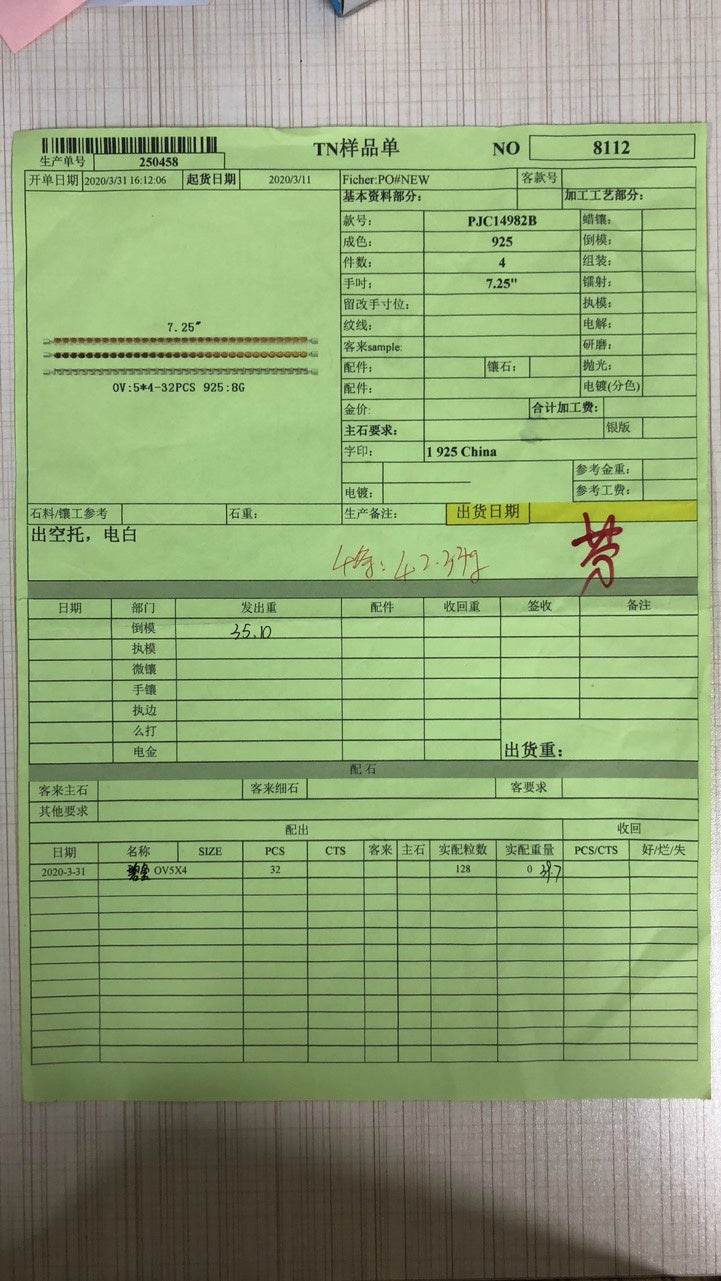 TN样品单 NO 8112
生产单号 250458
开单日期 2020/3/31 16:12:06 起货日期 2020/3/11 Ficher:PO#NEW 客款号
基本资料部分: 加工工艺部分:
款号: PJC14982B 蜡镶:
成色: 925 倒模:
件数: 4 组装:
手吋: 7.25" 镭射:
留改手寸位: 执模:
纹线: 电解:
客来sample: 研磨:
配件: 镶石: 抛光:
配件: 电镀(分色)
金价: 合计加工费:
主石要求: 银版
字印: 1 925 China
参考金重:
电镀: 参考工费:
7.25"
OV:5*4-32PCS 925:8G
石料/镶工参考 石重: 生产备注: 出货日期
出空托，电白
4条: 42.34g
日期 部门 发出重 配件 收回重 签收 备注
倒模 35.10
执模
微镶
手镶
执边
么打
电金 出货重:
配石
客来主石 客来细石 客要求
其他要求
配出 收回
日期 名称 SIZE PCS CTS 客来 主石 实配粒数 实配重量 PCS/CTS 好/烂/失
2020-3-31 OV5X4 32 128 0